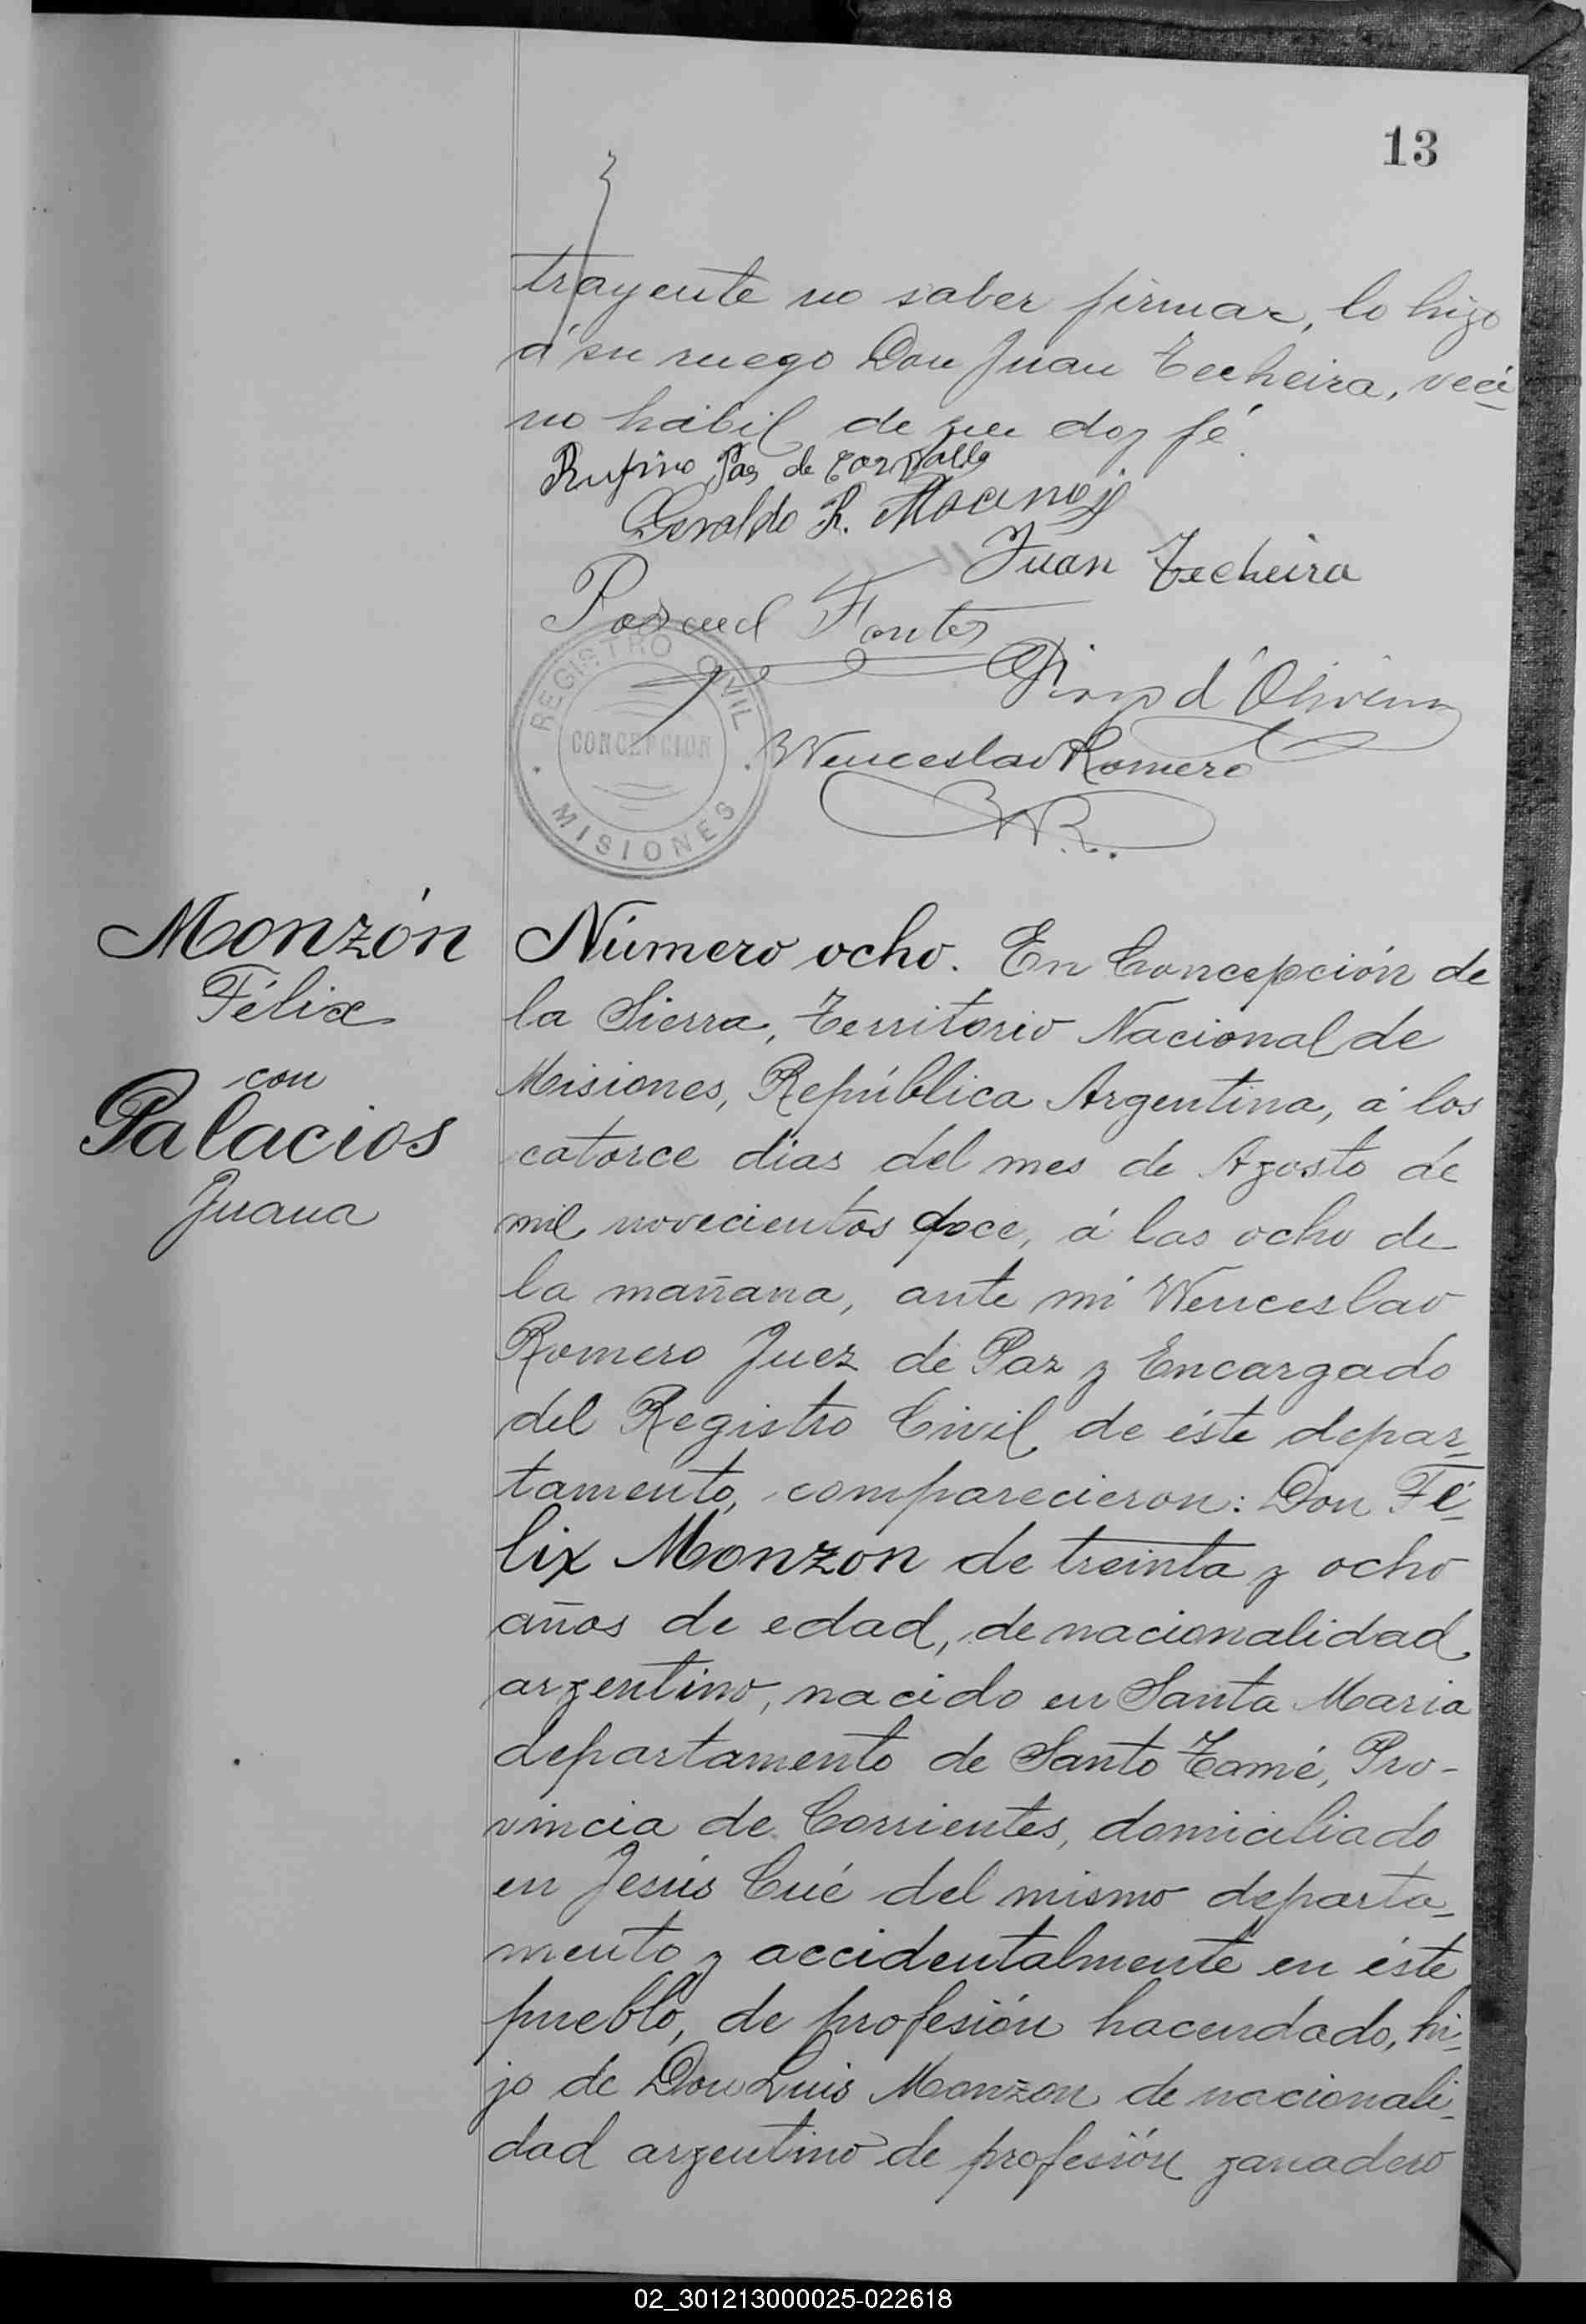 13
trayente no saber firmar, lo hizo
á su ruego Don Juan Techeira, veci-
no hábil de que doy fé.
Rufino Paz de
Geraldo R.
Juan Techeira
Pascual Fontes
d'Oliveira
Wenceslao Romero
W.R.
REGISTRO CIVIL
CONCEPCION
MISIONES
Monzón
Félix
con
Palacios
Juana
Número ocho. En Concepción de
la Sierra, Territorio Nacional de
Misiones, República Argentina, á los
catorce dias del mes de Agosto de
mil novecientos doce, á las ocho de
la mañana, ante mí Wenceslao
Romero Juez de Paz y Encargado
del Registro Civil de éste depar-
tamento, comparecieron: Don Fé-
lix Monzón de treinta y ocho
años de edad, de nacionalidad
argentino, nacido en Santa Maria
departamento de Santo Tomé, Pro-
vincia de Corrientes, domiciliado
en Jesús Cué del mismo departa-
mento y accidentalmente en éste
pueblo, de profesión hacendado, hi-
jo de Don Luis Monzon de nacionali-
dad argentino de profesión ganadero
02_301213000025-022618